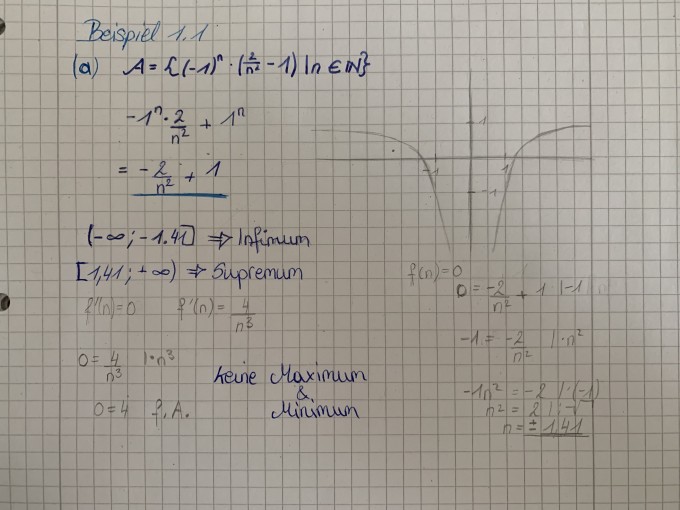 Beispiel 1.1
(a) A = {(-1)ⁿ · (2/n² - 1) | n ∈ ℕ}
-1ⁿ · 2/n² + 1ⁿ
= -2/n² + 1
1
-1 1
-1
(-∞; -1.41] ⇒ Infimum
[1,41; +∞) ⇒ Supremum
f'(n)=0 f'(n) = 4/n³
0 = 4/n³ |·n³
0=4 f.A.
keine Maximum
&
Minimum
f(n)=0
0 = -2/n² + 1 |-1
-1 = -2/n² |·n²
-1n² = -2 |:(-1)
n² = 2 |:√
n = ± 1,41